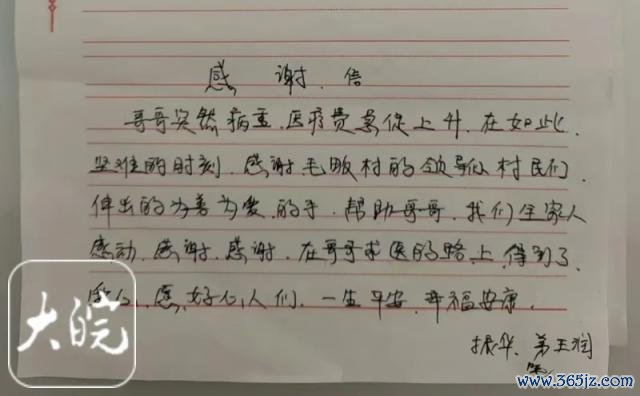 感谢信
哥哥突然病重.医疗费急促上升.在如此.
坚难的时刻.感谢毛畈村的领导们村民们.
伸出的为善为爱的手.帮助哥哥.我们全家人
感动.感谢.感谢.在哥哥求医的路上.得到了.
愿好心人们.一生平安.幸福安康.
振华.弟玉
大皖
www.365jz.com